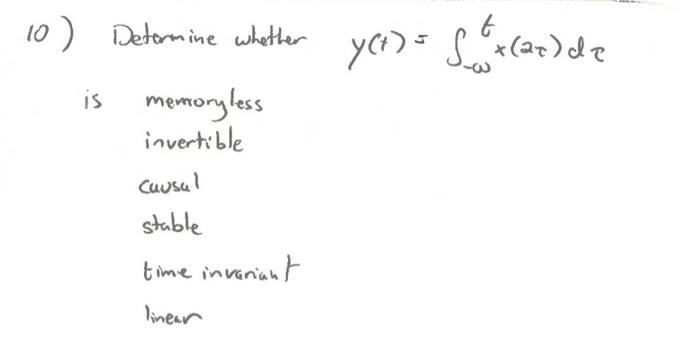 10) Determine whether y(t) = ∫_{-∞}^{t} x(2τ) dτ
is memoryless
invertible
causal
stable
time invariant
linear